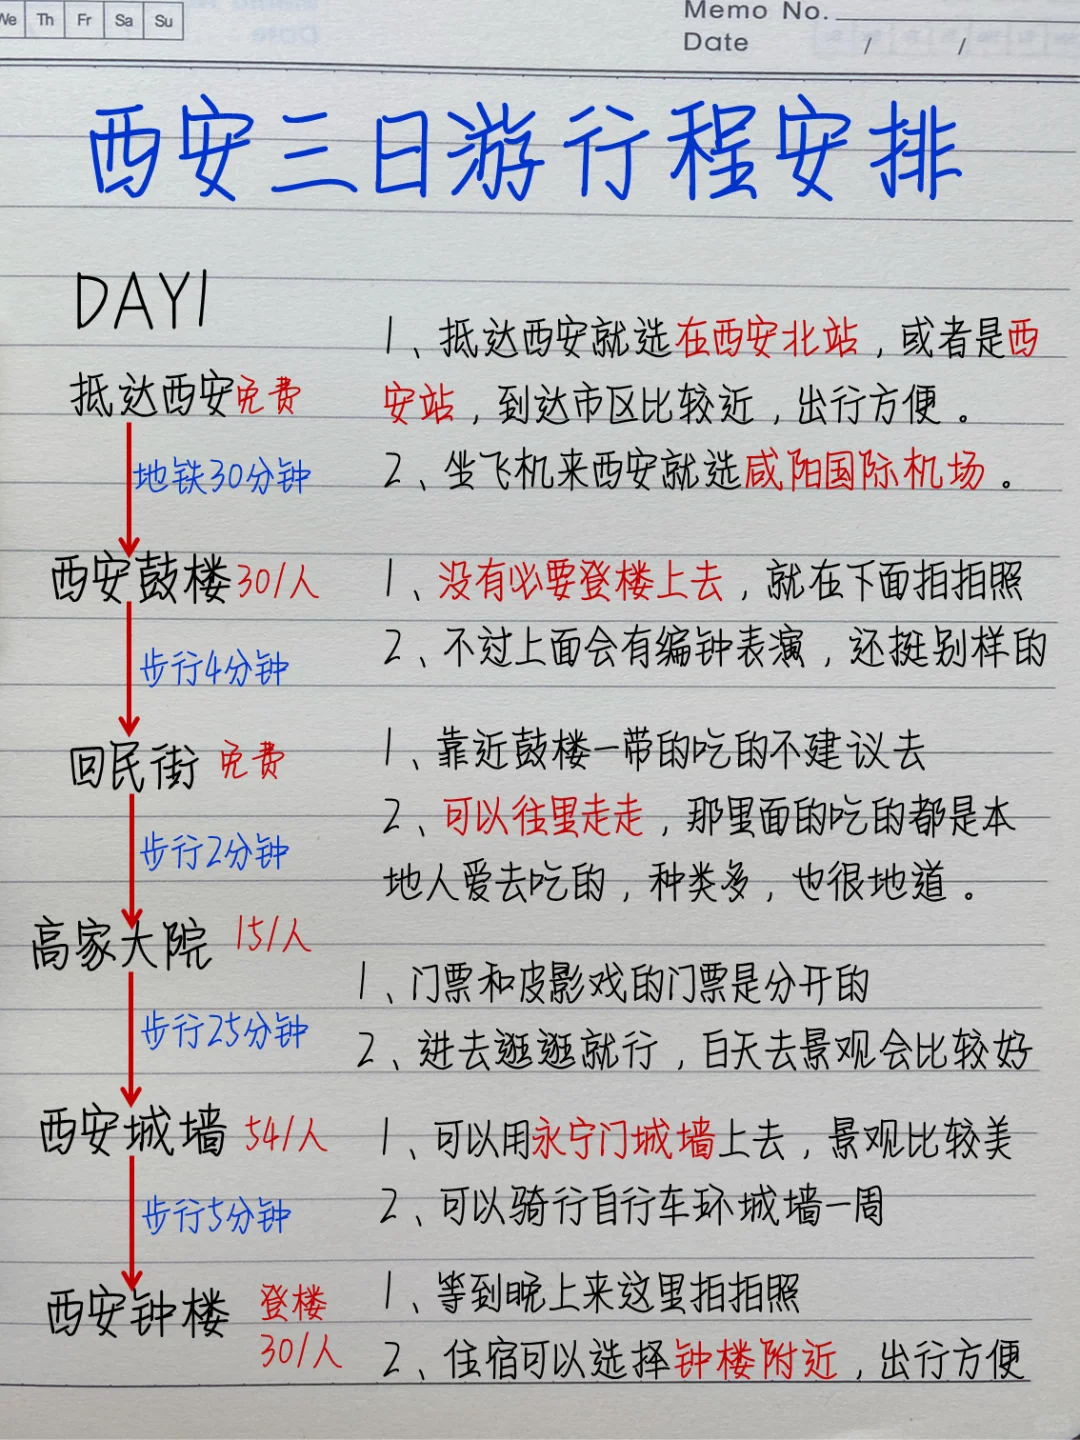 We Th Fr Sa Su
Memo No.
Date / /
西安三日游行程安排
DAY1
抵达西安免费
1、抵达西安就选在西安北站，或者是西
安站，到达市区比较近，出行方便。
2、坐飞机来西安就选咸阳国际机场。
地铁30分钟
西安鼓楼30/人
1、没有必要登楼上去，就在下面拍拍照
2、不过上面会有编钟表演，还挺别样的
步行4分钟
回民街 免费
1、靠近鼓楼一带的吃的不建议去
2、可以往里走走，那里面的吃的都是本
地人爱去吃的，种类多，也很地道。
步行2分钟
高家大院 15/人
1、门票和皮影戏的门票是分开的
2、进去逛逛就行，白天去景观会比较好
步行25分钟
西安城墙 54/人
1、可以用永宁门城墙上去，景观比较美
2、可以骑行自行车环城墙一周
步行5分钟
西安钟楼 登楼
30/人
1、等到晚上来这里拍拍照
2、住宿可以选择钟楼附近，出行方便